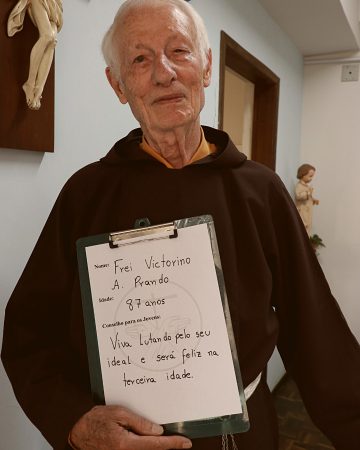 Nome: Frei Victorino
A. Prando
Idade: 87 anos
Conselho para os Jovens:
Viva Lutando pelo seu
ideal e será feliz na
terceira idade.